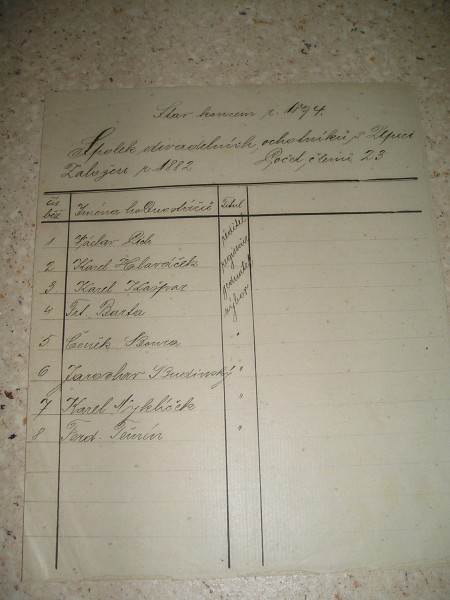 Stav koncem r. 1894.
Spolek divadelních ochotníků v
Založen r. 1882 Počet členů 23
čís. běž. Jména hodnostářů Titul
1 Václav Pich ředitel
2 Karel Hlaváček
3 Karel Kašpar jednatel
4 Fr. Barta výbor
5 Čeněk "
6 Jaroslav Budínský "
7 Karel Nyklíček "
8 Ferd. "